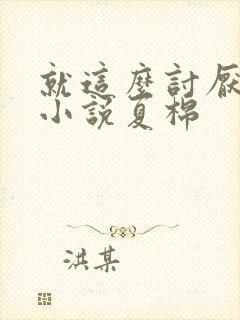 就這麼討厭
小說夏棉
洪某